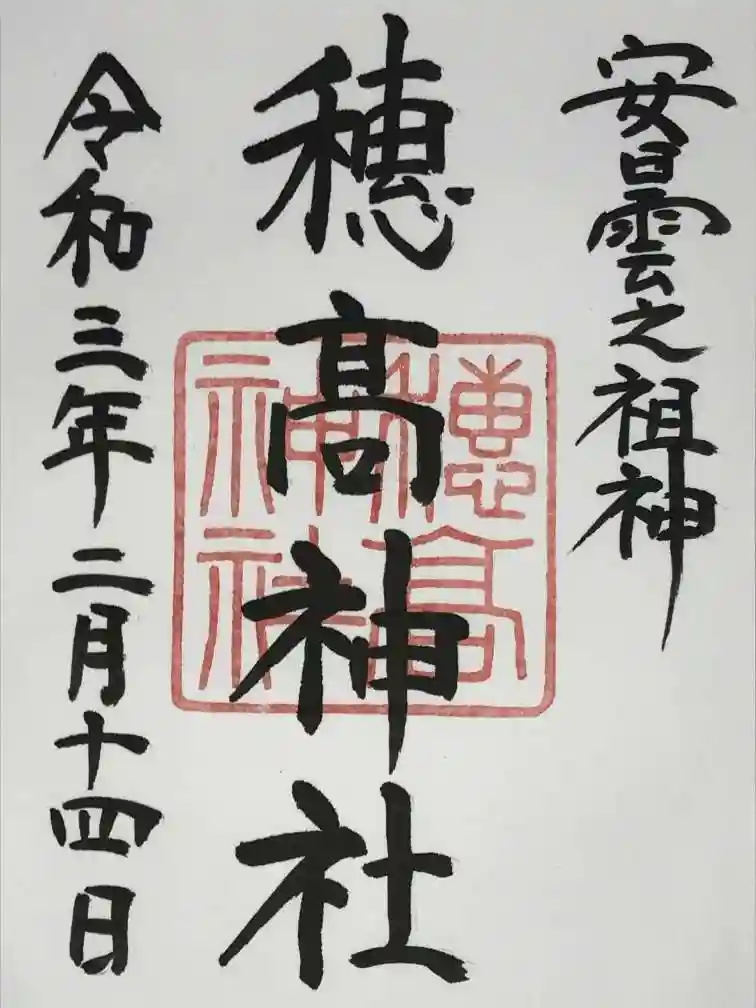 安曇之祖神
穂高神社
令和三年二月十四日
穂高
神社